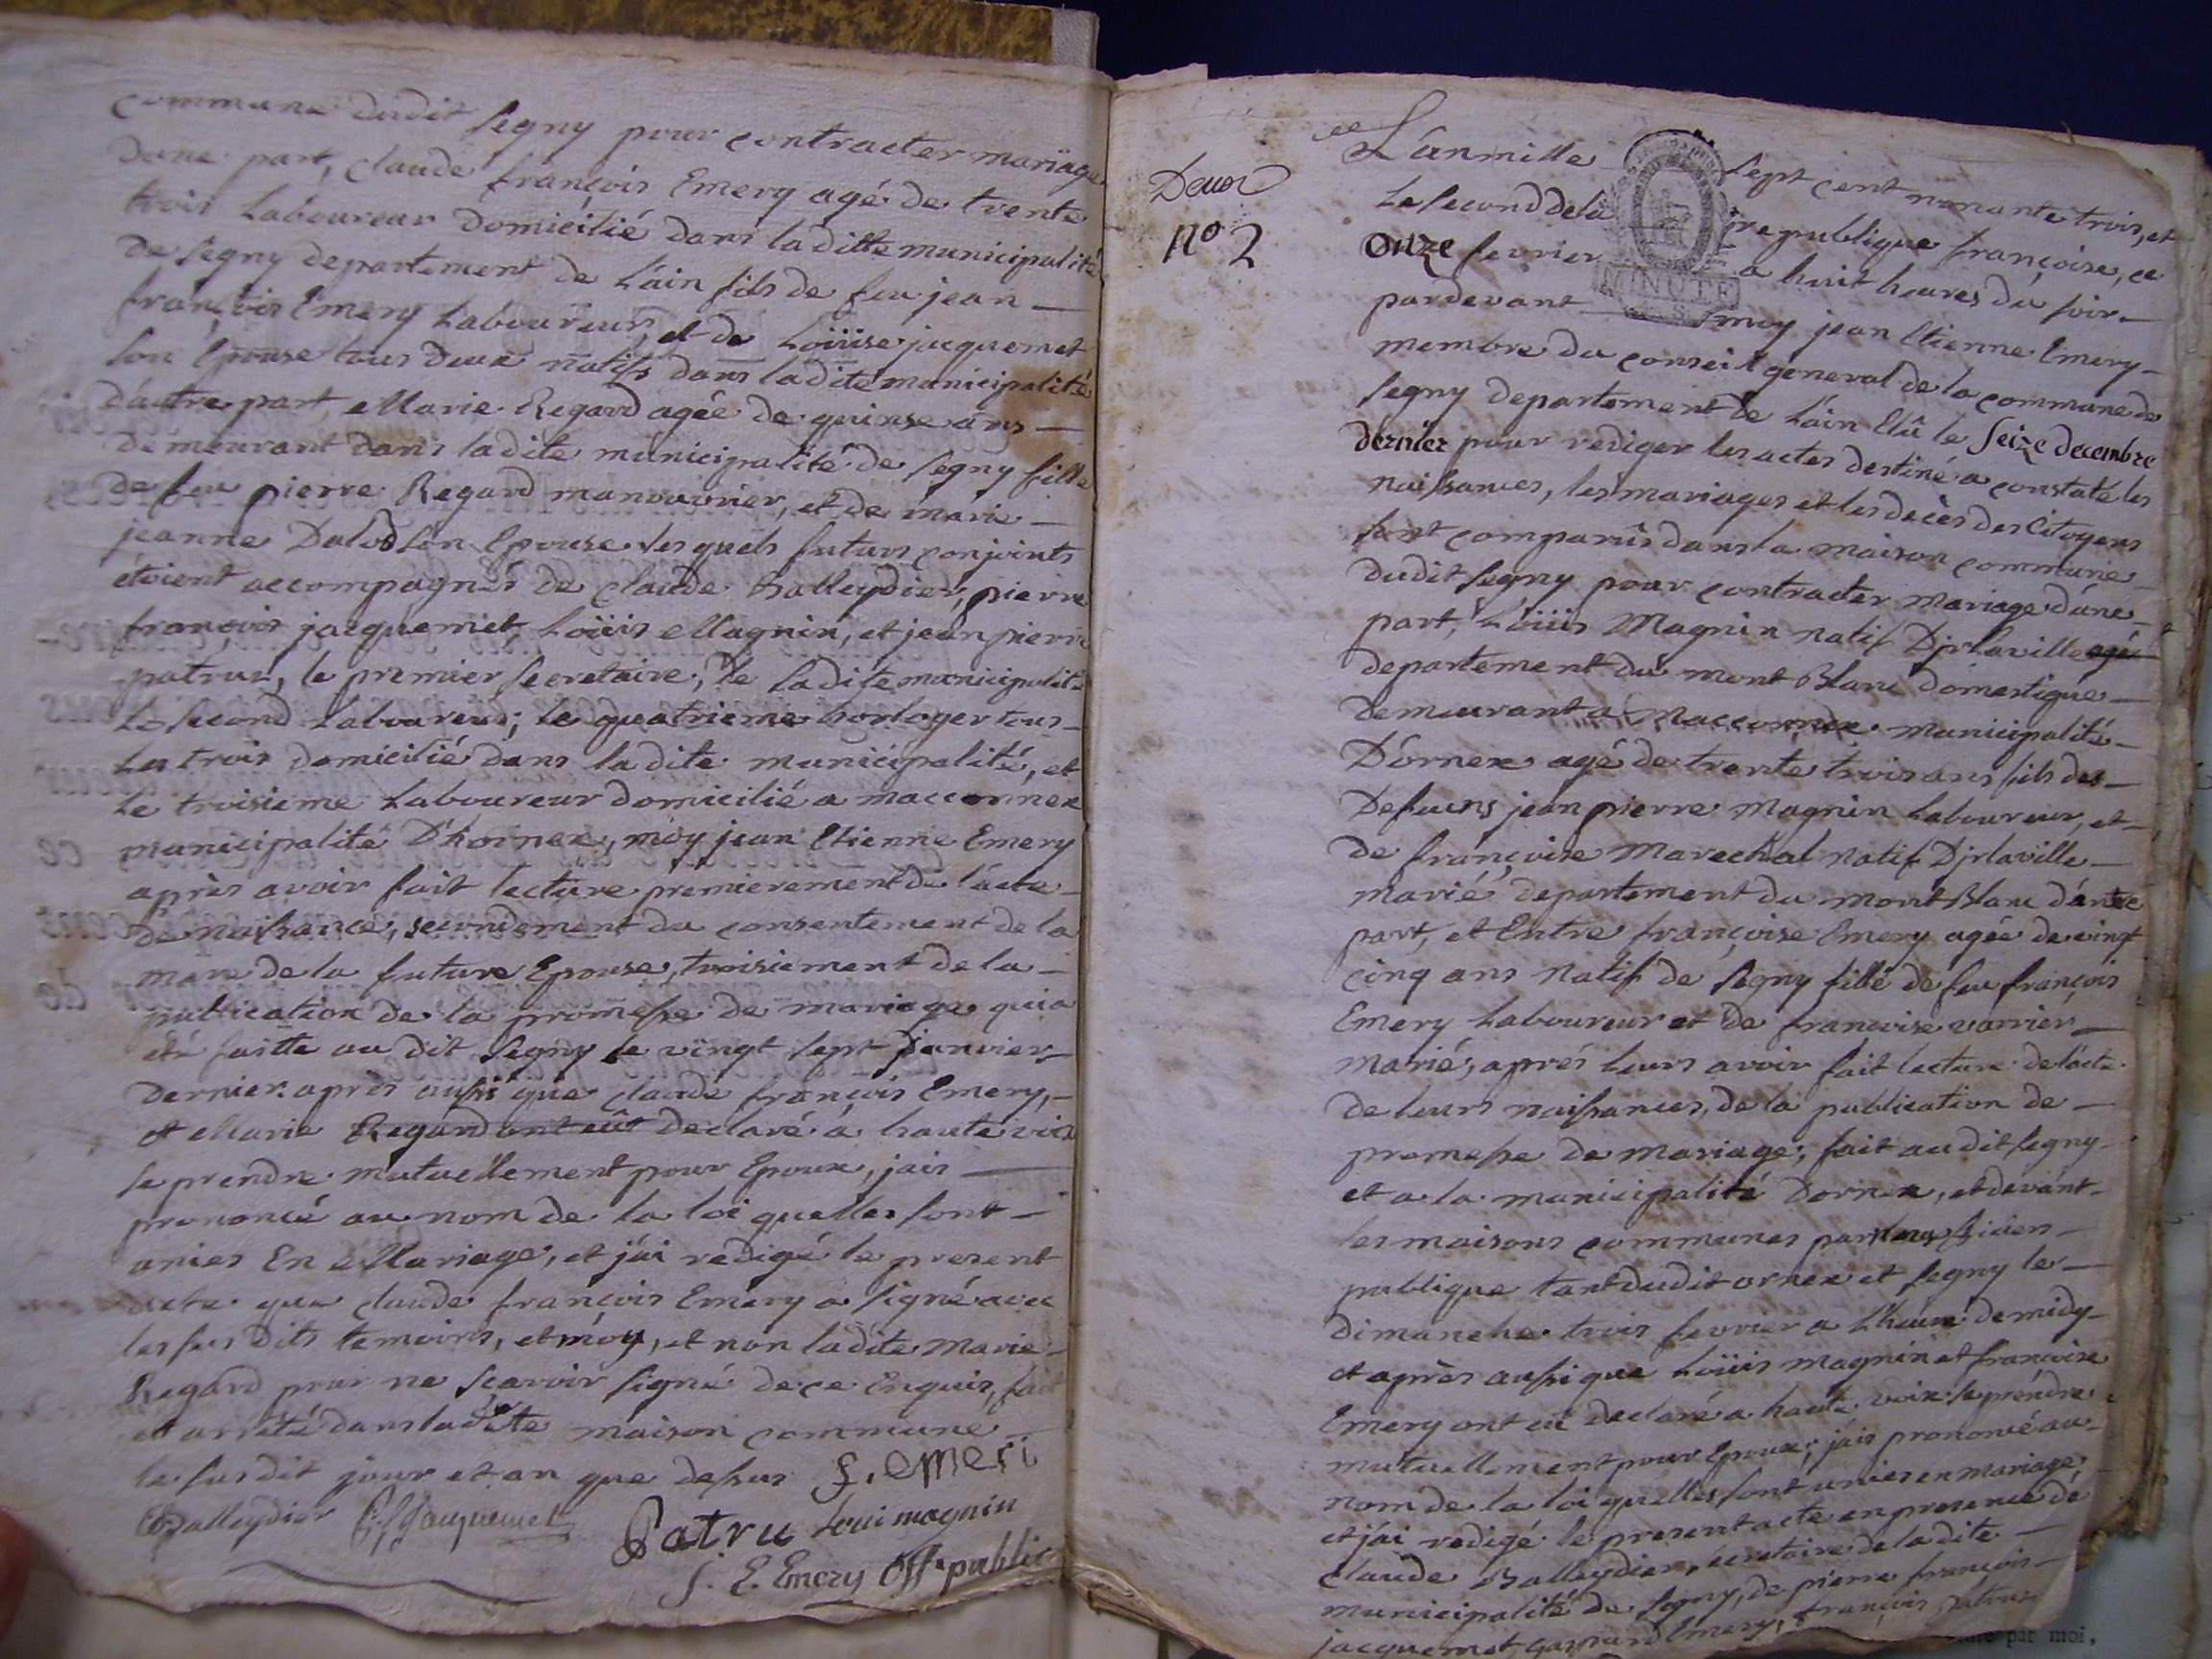 commune dudit segny pour contracter mariage
dune part, claude françois Emery agé de trente
trois Laboureur Domicilié dans laditte municipalité
De segny departement de L'ain fils de feu jean —
françois Emery Laboureur, et de Loüise jacquemet
son Epouse tous deux natifs dans ladite municipalité
d'autre part, Marie Regard agée de quinse ans —
demeurant dans ladite municipalité de segny fille
de feu pierre Regard manouvrier, et de marie —
jeanne Dalod son Epouse les quels futurs conjoints
étoient accompagnés de claude balleydier, pierre
françois jacquemet, Loüis Magnin, et jean pierre
patrus, le premier secretaire, de ladite municipalité
Le second Laboureur; le quatrieme horloger tous —
Les trois domicilié dans ladite municipalité, et
Le troisieme Laboureur domicilié a macconnex
municipalité D'hornex, moy jean Etienne Emery
après avoir fait lecture premierement de l'acte —
de naissance, secondement du consentement de la
mere de la future Epouse, troisiement de la —
publication de la promesse de mariage qui a
été faitte au dit segny le vingt sept janvier —
dernier. après aussi que claude françois Emery, —
et Marie Regard ont eût declaré a haute voix
se prendre mutuellement pour Epoux, jais —
prononcé au nom de la loi quelles sont —
unies En Mariage, et j'ai redigé le present
acte que claude françois Emery a signé avec
les sus dits temoins, et moy, et non ladite Marie
Regard pour ne scavoir signé de ce Enquis, fait
et arrêté dans ladite maison commune
le susdit jour et an que dessus f. emeri
balleydier P. f. Jacquemet
Patru Loui magnin
J. E. Emery Off. public
Deux
No 2
L'anmille sept cent nonante trois, et
Le second de la republique françoise, ce
Onze fevrier a huit heures du soir —
MINUTE
pardevant moy jean Etienne Emery —
membre du conseil general de la commune de
segny departement de L'ain Elû le Seize decembre
dernier pour rediger les actes destiné a constaté les
naissances, les mariages et les decès des Citoyens
sont comparûs dans la maison commune —
dudit segny pour contracter mariage d'une —
part, Loüis Magnin natif Djrlaville agé
departement du mont Blanc domestique —
demeurant a Macconnex municipalité —
D'ornex agé de trente trois ans fils des —
Defuns jean pierre Magnin Laboureur, et —
de françoise Marechal natif Djrlaville —
marié, departement du mont Blanc d'autre
part, et Entre françoise Emery agée de vingt
cinq ans natif de segny fille de feu françois
Emery Laboureur et de francoise varrier —
marié; aprés leurs avoir fait lecture de l'acte
de leurs naissances, de la publication de —
promesse de mariage, fait audit segny —
et a la municipalité Dornex, et devant —
les maisons communes par officiers —
publique tant dudit ornex et segny le —
dimanche trois fevrier a L'heure de midy —
et aprèr aussi que Loüis magnin et francoise
Emery ont eû declaré a haute voix se prendre
mutuellement pour Epoux; jais prononcé au —
nom de la loi quelles sont unies en mariage
et j'ai redigé le present acte en presence de
claude Balleydier, secretaire de ladite —
municipalité de segny, de pierre françois —
jacquemet, gaspard Emery, françois patrus
par moi,